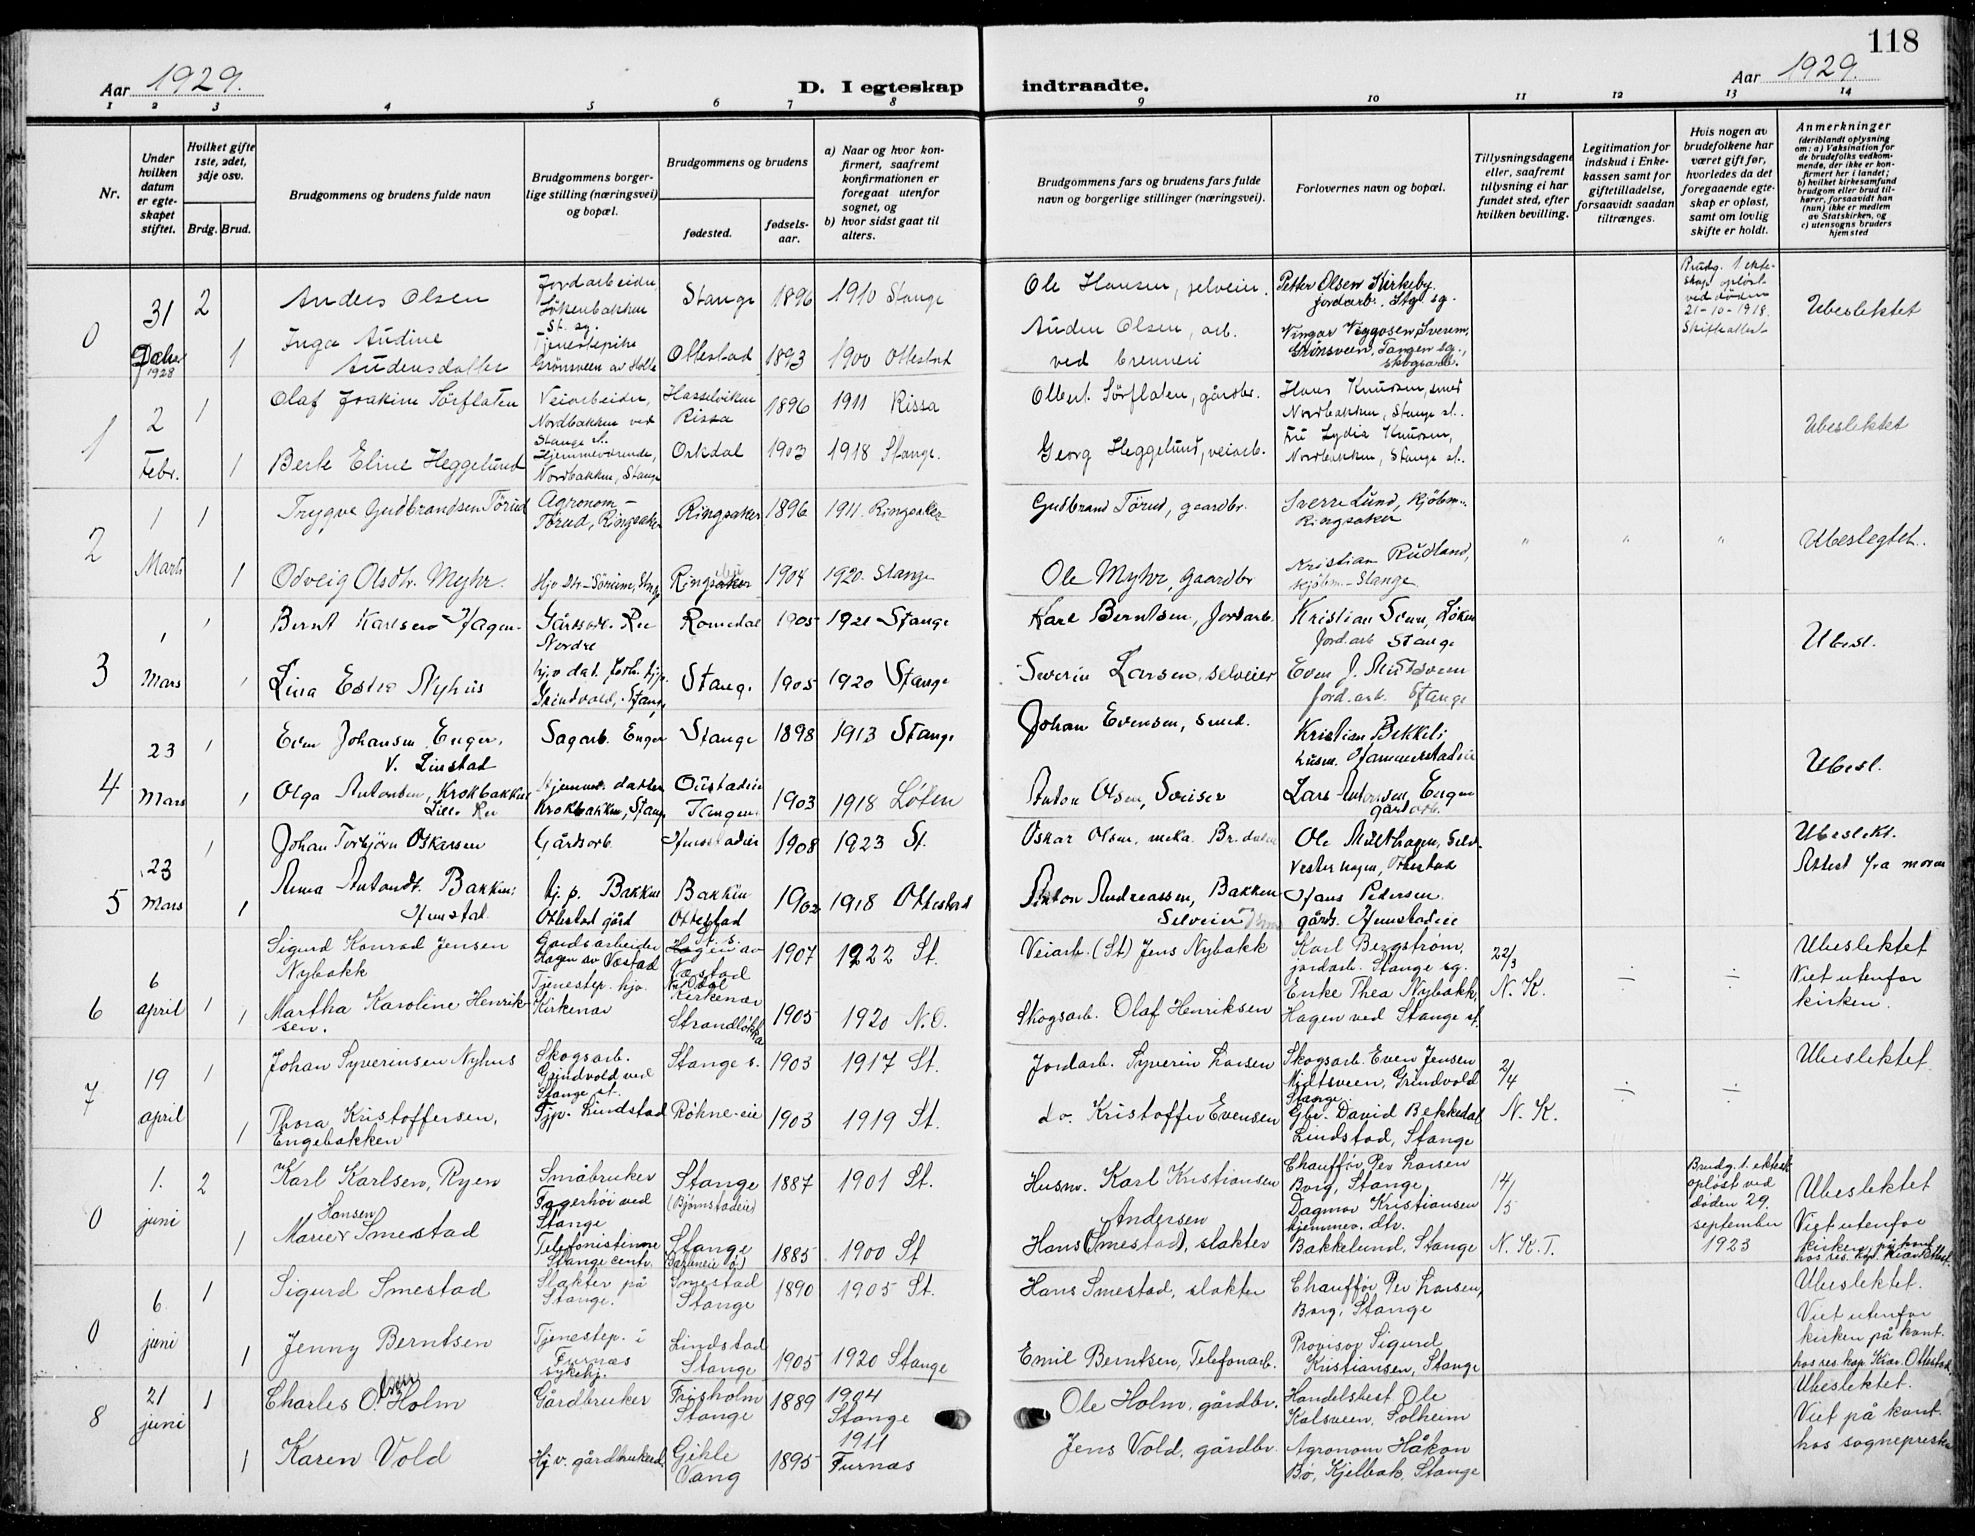 118
Aar 1929.
D. I egteskap indtraadte.
Aar 1929.
1 2 3 4 5 6 7 8 9 10 11 12 13 14
Nr.
Under hvilken datum er egteskapet stiftet.
Hvilket gifte 1ste, 2det, 3dje osv.
Brdg. Brud.
Brudgommens og brudens fulde navn
Brudgommens borgerlige stilling (næringsvei) og bopæl.
Brudgommens og brudens
fødested.
fødselsaar.
a) Naar og hvor konfirmert, saafremt konfirmationen er foregaat utenfor sognet, og
b) hvor sidst gaat til alters.
Brudgommens fars og brudens fars fulde navn og borgerlige stillinger (næringsvei).
Forlovernes navn og bopæl.
Tillysningsdagene eller, saafremt tillysning ei har fundet sted, efter hvilken bevilling.
Legitimation for indskud i Enkekassen samt for giftetilladelse, forsaavidt saadan tiltrænges.
Hvis nogen av brudefolkene har været gift før, hvorledes da det foregaaende egteskap er opløst, samt om lovlig skifte er holdt.
Anmerkninger
(deriblandt oplysning om: a) Vaksination for de brudefolks vedkommende, der ikke er konfirmert her i landet;
b) hvilket kirkesamfund brudgom eller brud tilhører, forsaavidt han (hun) ikke er medlem av Statskirken, og
c) utensogns bruders hjemsted
0 31 2 Anders Olsen Jordarbeider, Stange 1896 1910 Stange Ole Hansen, selveier. Petter Olsen Kirkeby, jordarb. Stg. sg. Brudg. 1 ekteskap opløst ved døden 21-10-1918. Skifteattest Ubeslektet
1928 1 Inga Audine Audensdatter Tjenestepike Grønsveen Ottestad 1893 1900 Ottestad Auden Olsen, arb. ved brenneri Grønsveen, Tangen sg., skogsarb.
1 2 Febr. 1 Olaf Joakim Sörflaten Veiarbeider, Nordbakken ved Stange st. Hasselviken Rissa 1896 1911 Rissa Olbert Sörflaten, gårdbr. Hans Knudsen, smed Nordbakken, Stange st. Ubeslektet
1 Berte Eline Heggelund Hjemmeværende, Nordbakken, Stange Orkdal 1903 1918 Stange. Georg Heggelund, veiarb. Fru Lydia Knudsen, Nordbakken, Stange st.
2 1 Marts 1 Trygve Gudbrandsen Törud Agronom - Törud, Ringsaker Ringsaker 1896 1911. Ringsaker Gudbrand Törud, gaardbr. Sverre Lund, Kjöbm. Ringsaker " " " Ubeslegtet.
1 Odveig Olsdtr. Myhr. Ringsaker 1904 1920. Stange Ole Myhr, gaardbr Kristian Rudland, kjöbm. - Stange
3 1 Mars 1 Bernt Karlsen Hagen Gårdsarb. Ree Nordre Romedal 1905 1921 Stange Karl Berntsen, Jordarb. Kristian Jordarb Stange Ubesl.
1 Lina Nyhus Grindvold, Stange Stange 1905 1920 Stange Severin Larsen, selveier Even J. Jord.arb. Stange
4 23 Mars 1 Even Johansen Enger, V. Linstad Sagarb. Enger Stange 1898 1913 Stange Johan Evensen, smed. Kristian Bekkeli Ubesl.
1 Olga Antonsen, Krokbakken Lille Ree Krokbakken, Stange Tangen 1903 1918 Løten Anton Olsen, Lars Andersen, Enger gårdarb.
5 23 Mars 1 Johan Torbjörn Oskarsen Gårdsarb 1908 1923 St. Oskar Olsen, Ole Ottestad Ubeslekt. Attest fra moren
1 Anna Antondt. Bakken Hj. p. Bakken Ottestad gård Bakken Ottestad 1902 1918 Ottestad Anton Andreassen, Bakken Selveier Hans Pedersen
6 6 april 1 Sigurd Konrad Jensen Nybakk Gårdsarbeider Hagen av Væstad Hagen av Væstad 1907 1922 St. Veiarb. (St) Jens Nybakk Karl Bergström, jordarb. Stange sg. 22/3 N. K. Ubeslektet Viet utenfor kirken.
1 Martha Karoline Henriksen. Tjenestep. hjo. Kirkenær Kirkenær Strandløkka 1905 1920 N.O. Skogsarb. Olaf Henriksen Enke Thea Nybakk, Hagen ved Stange st.
7 19 april 1 Johan Syverinsen Nyhus Skogsarb. Grindvold ved Stange st. Stange s. 1903 1917 St. Jordarb. Syverin Larsen Skogsarb. Even Jensen Midtsveen, Grindvold Stange 2/4 N. K. Ubeslektet
1 Thora Kristoffersen, Engebakken Tjp. Lindstad Røhne-eie 1903 1919 St. do. Kristoffer Evensen Gbr. David Bekkedal Lindstad, Stange
0 1. juni 2 Karl Karlsen, Ryen Småbruker Fagerhøi ved Stange Stange (Bjørnstadeie) 1887 1901 St. Husm. Karl Kristiansen Chauffør Per Larsen Borg, Stange 14/5 N. K. T. Brudg. 1. ektesk. opløst ved døden 29. september 1923 Ubeslektet Viet utenfor kirken
1 Marie Hansen Smestad Telefonistinne Stange centr. Stange 1885 1900 St Hans Andersen (Smestad), slakter Dagmar Kristiansen hjemmev. dtr. Bakkelund, Stange
0 6. juni 1 Sigurd Smestad Slakter på Stange. Smestad Stange 1890 1905 St. Hans Smestad, slakter Chauffør Per Larsen, Borg, Stange Ubeslektet. Viet utenfor kirken på kont. hos res. kap. Kiær, Ottestad.
1 Jenny Berntsen Tjenestep. i Furnes sykehj. Lindstad Stange 1905 1920 Stange Emil Berntsen, Telefonarb. Provisor Sigurd Kristiansen, Stange
8 21 juni 1 Charles Olsen Holm Gårdbruker Frisholm Stange 1889 1904 Stange Ole Holm, gårdbr. Handelsbest Ole Kalsveen, Solheim Ubeslektet. Viet på kont. hos sogneprest
1 Karen Vold Hj. v. gårdbrukerd. Gikle Vang 1895 1911 Furnæs Jens Vold, gårdbr. Agronom Håkon Bø, Kjelbak, Stange